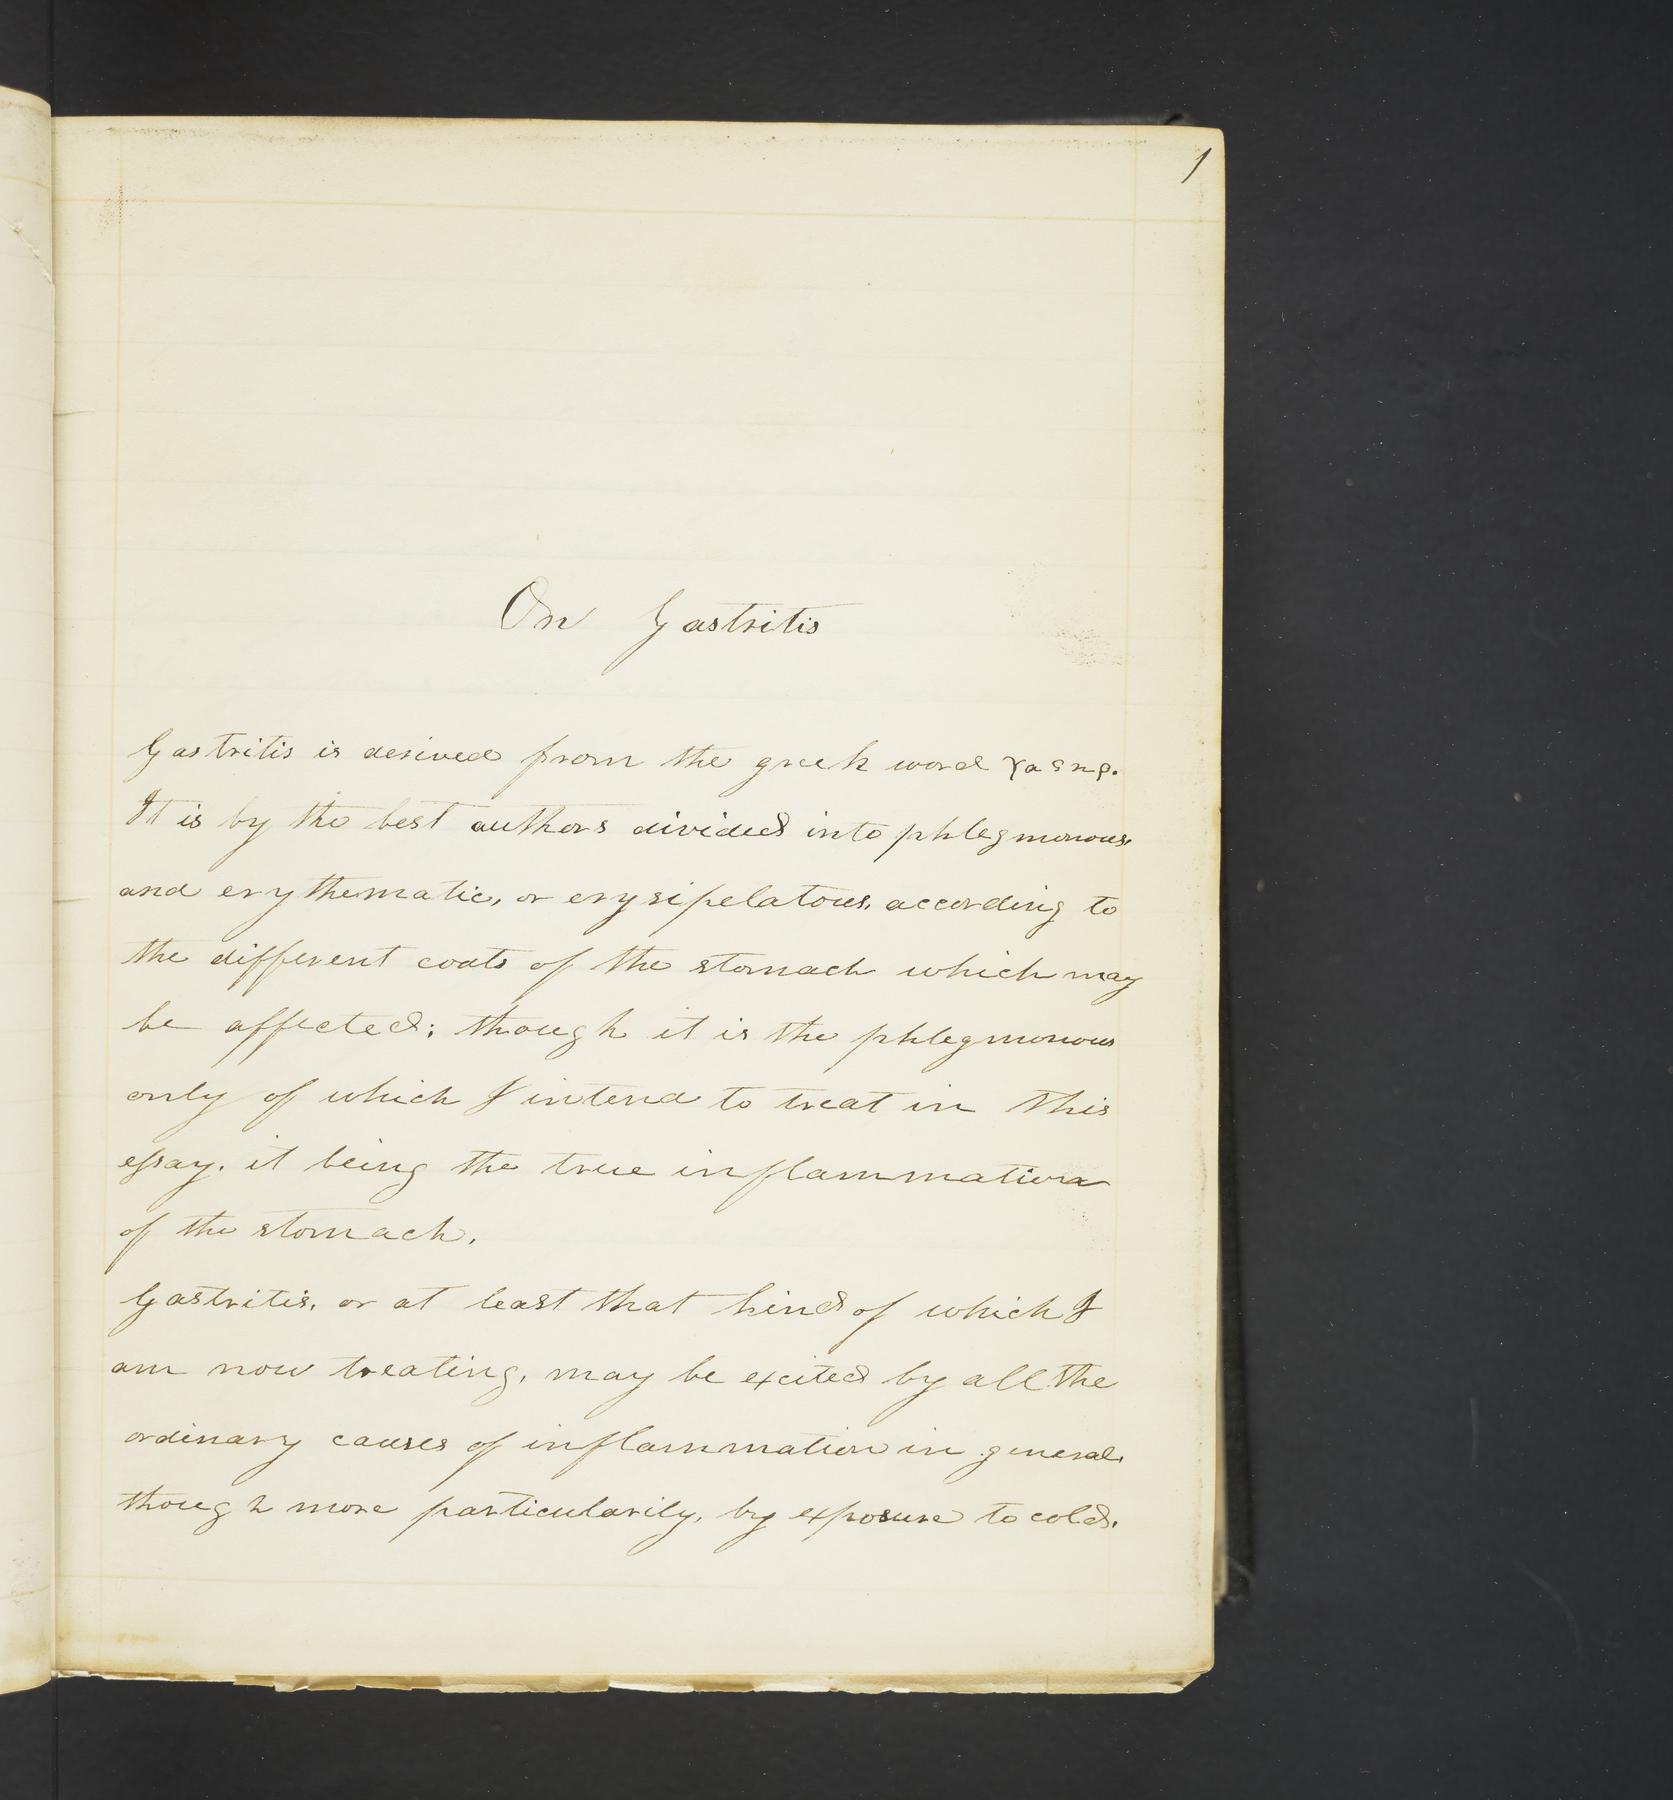 1
On Gastritis
Gastritis is derived from the greek word γαςηρ.
It is by the best authors divided into phlegmonous,
and erythematic, or erysipelatous, according to
the different coats of the stomach which may
be affected; though it is the phlegmonous
only of which I intend to treat in this
essay, it being the true inflammation
of the stomach.
Gastritis, or at least that kind of which I
am now treating, may be excited by all the
ordinary causes of inflammation in general,
though more particularily, by exposure to cold,